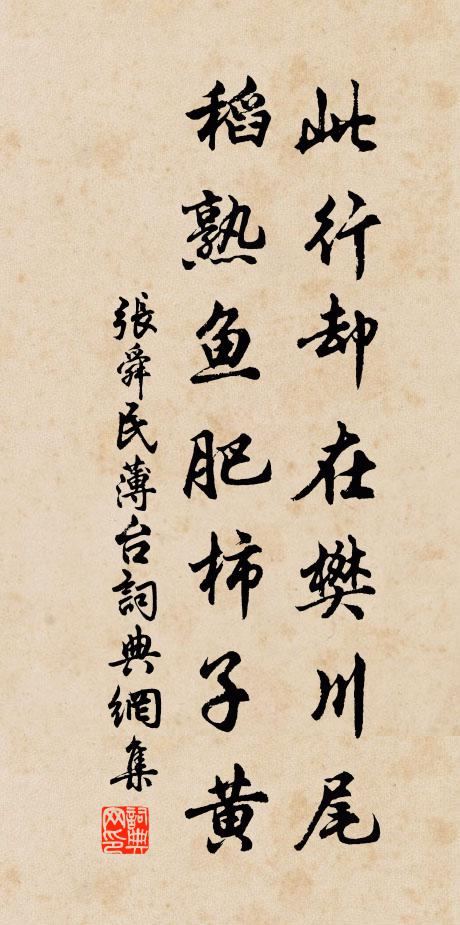 此行却在樊川尾
稻熟鱼肥柿子黄
張舜民薄台詞典網集
詞典網印